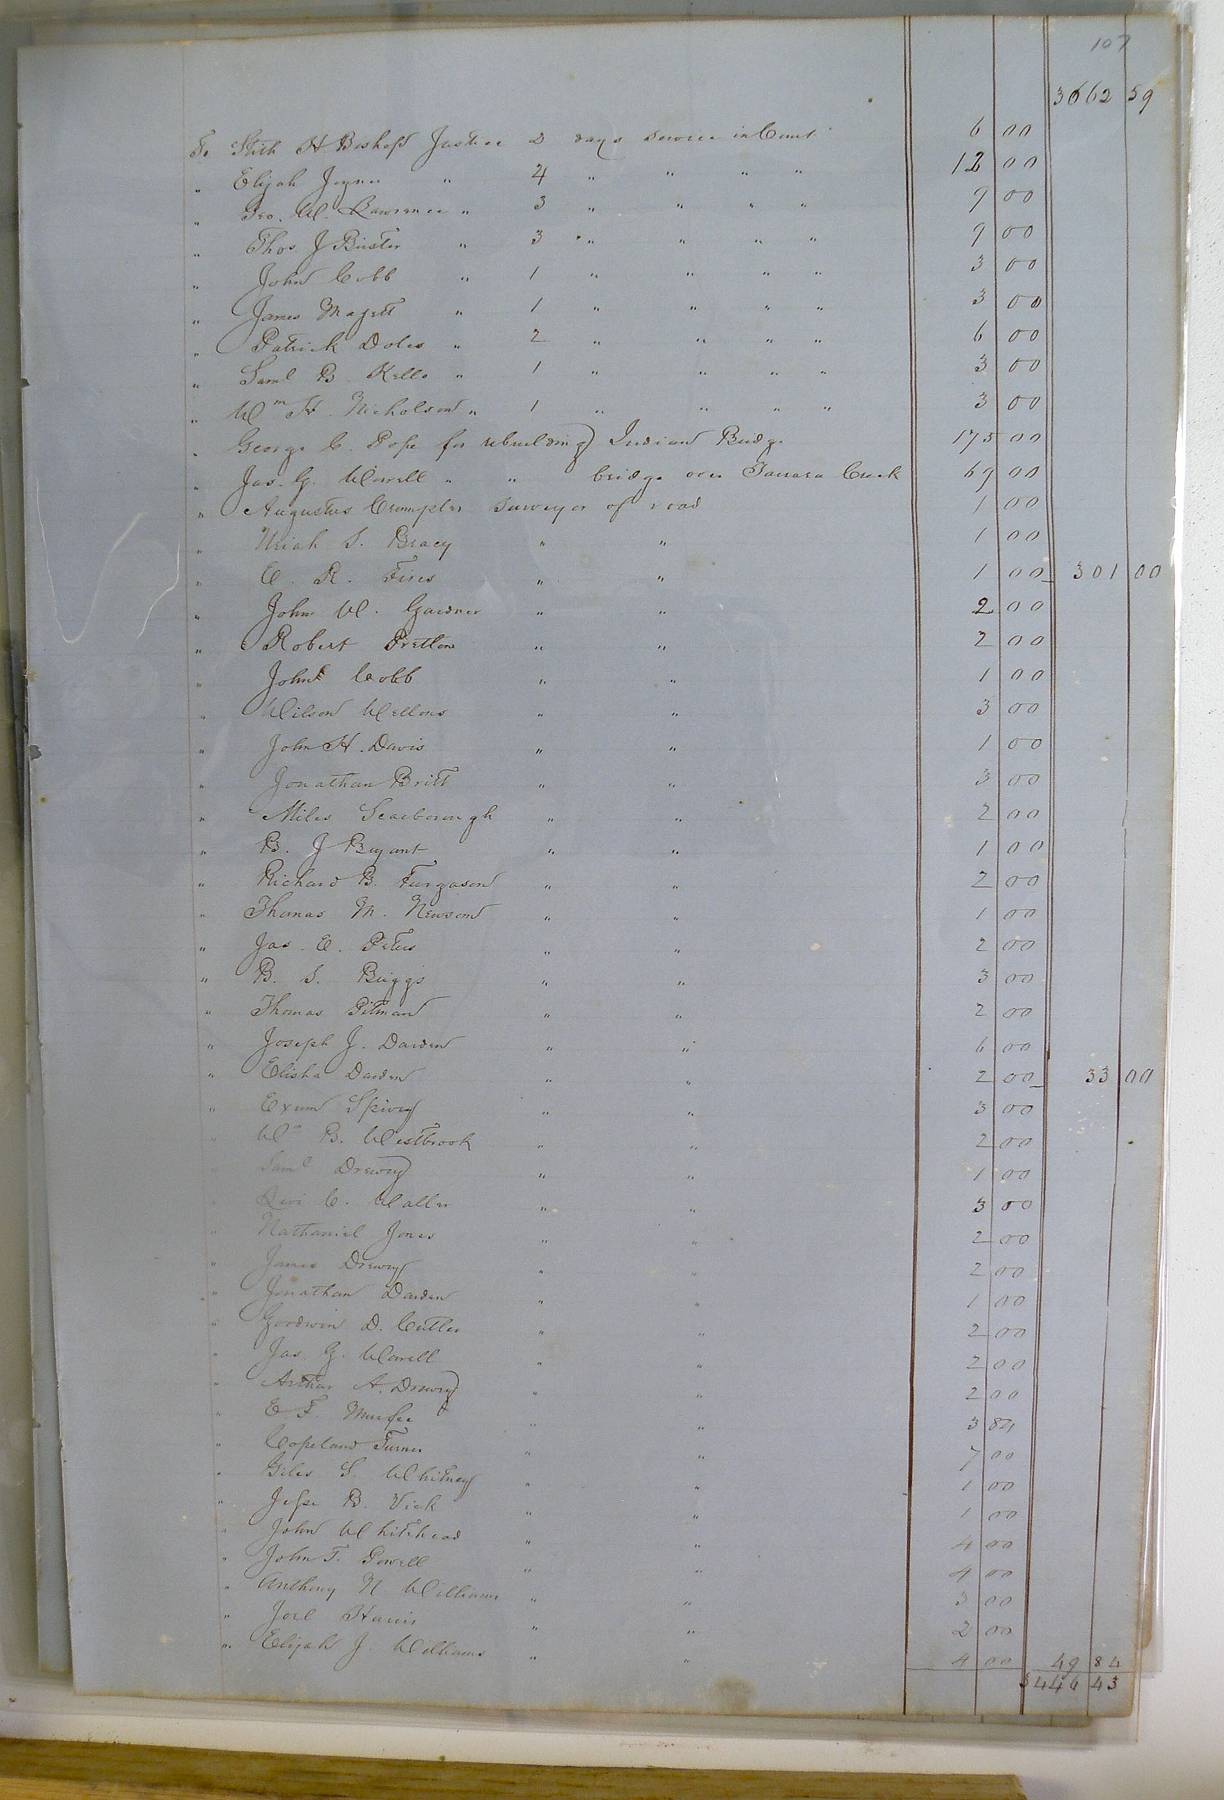 107
3662 59
To Stith H Bishop Justice 2 days service in Court 6 00
" Elijah Joyner " 4 " " " " 12 00
" Geo. W. Lawrence " 3 " " " " 9 00
" Thos J Bister " 3 " " " " 9 00
" John Cobb " 1 " " " " 3 00
" James Magett " 1 " " " " 3 00
" Patrick Doles " 2 " " " " 6 00
" Saml B Kello " 1 " " " " 3 00
" Wm H. Nicholson " 1 " " " " 3 00
" George C. Pope for rebuilding Indian Bridge 175 00
" Jas. G. Worrell " " bridge over Tarrara Creek 69 00
" Augustus Crumpler surveyor of road 1 00
" Uriah S. Bracy " " 1 00
" E. R. Fires " " 1 00 301 00
" John W. Gardner " " 2 00
" Robert Pretlow " " 2 00
" John Cobb " " 1 00
" Wilson Wellons " " 3 00
" John H. Davis " " 1 00
" Jonathan Britt " " 3 00
" Miles Scarborough " " 2 00
" B. J Bryant " " 1 00
" Richard B. Furgason " " 2 00
" Thomas M. Newsom " " 1 00
" Jas. E. Peters " " 2 00
" B. S. Briggs " " 3 00
" Thomas Pitman " " 2 00
" Joseph J. Darden " " 6 00
" Elisha Darden " " 2 00 33 00
" Exum Spivey " " 3 00
" Wm B. Westbrook " " 2 00
" Saml Drewry " " 1 00
" Levi C. Waller " " 3 00
" Nathaniel Jones " " 2 00
" James Drewry " " 2 00
" Jonathan Darden " " 1 00
" Goodwin D. Cutler " " 2 00
" Jas. G. Worrell " " 2 00
" Arthur A. Drewry " " 2 00
" E F. Murfee " " 3 84
" Copeland Turner " " 7 00
" Giles S. Whitney " " 1 00
" Jesse B. Vick " " 1 00
" John Whitehead " " 4 00
" John T. Powell " " 4 00
" Anthony N Williams " " 3 00
" Joel Harris " " 2 00
" Elijah J. Williams " " 4 00 49 84
$4446 43